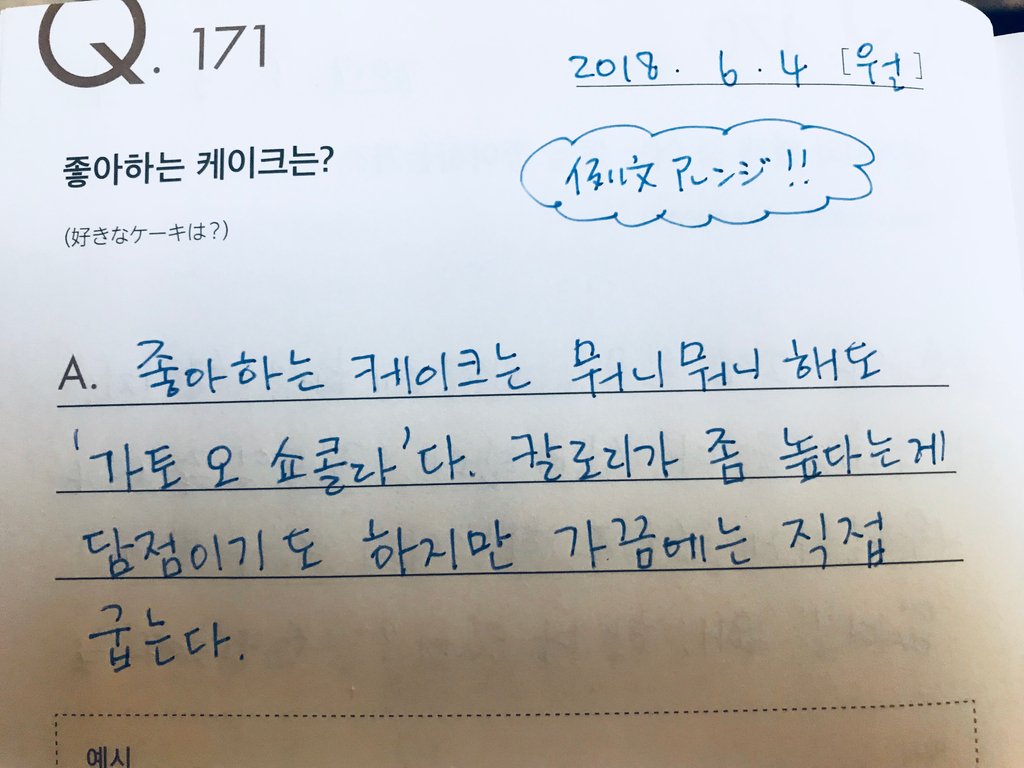 Q. 171
2018. 6. 4 [월]
좋아하는 케이크는?
例文アレンジ!!
(好きなケーキは?)
A. 좋아하는 케이크는 뭐니뭐니 해도
'가토 오 쇼콜라'다. 칼로리가 좀 높다는게
담점이기도 하지만 가끔에는 직접
굽는다.
예시